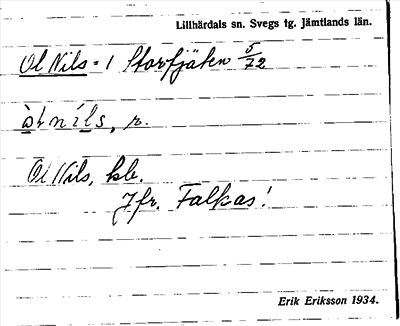 Lillhärdals sn. Svegs tg. Jämtlands län.
Ol Nils = 1 Storfjäten 5/72
òḷ nìls, r.
Ol Nils, kb.
Jfr. Falkas!
Erik Eriksson 1934.